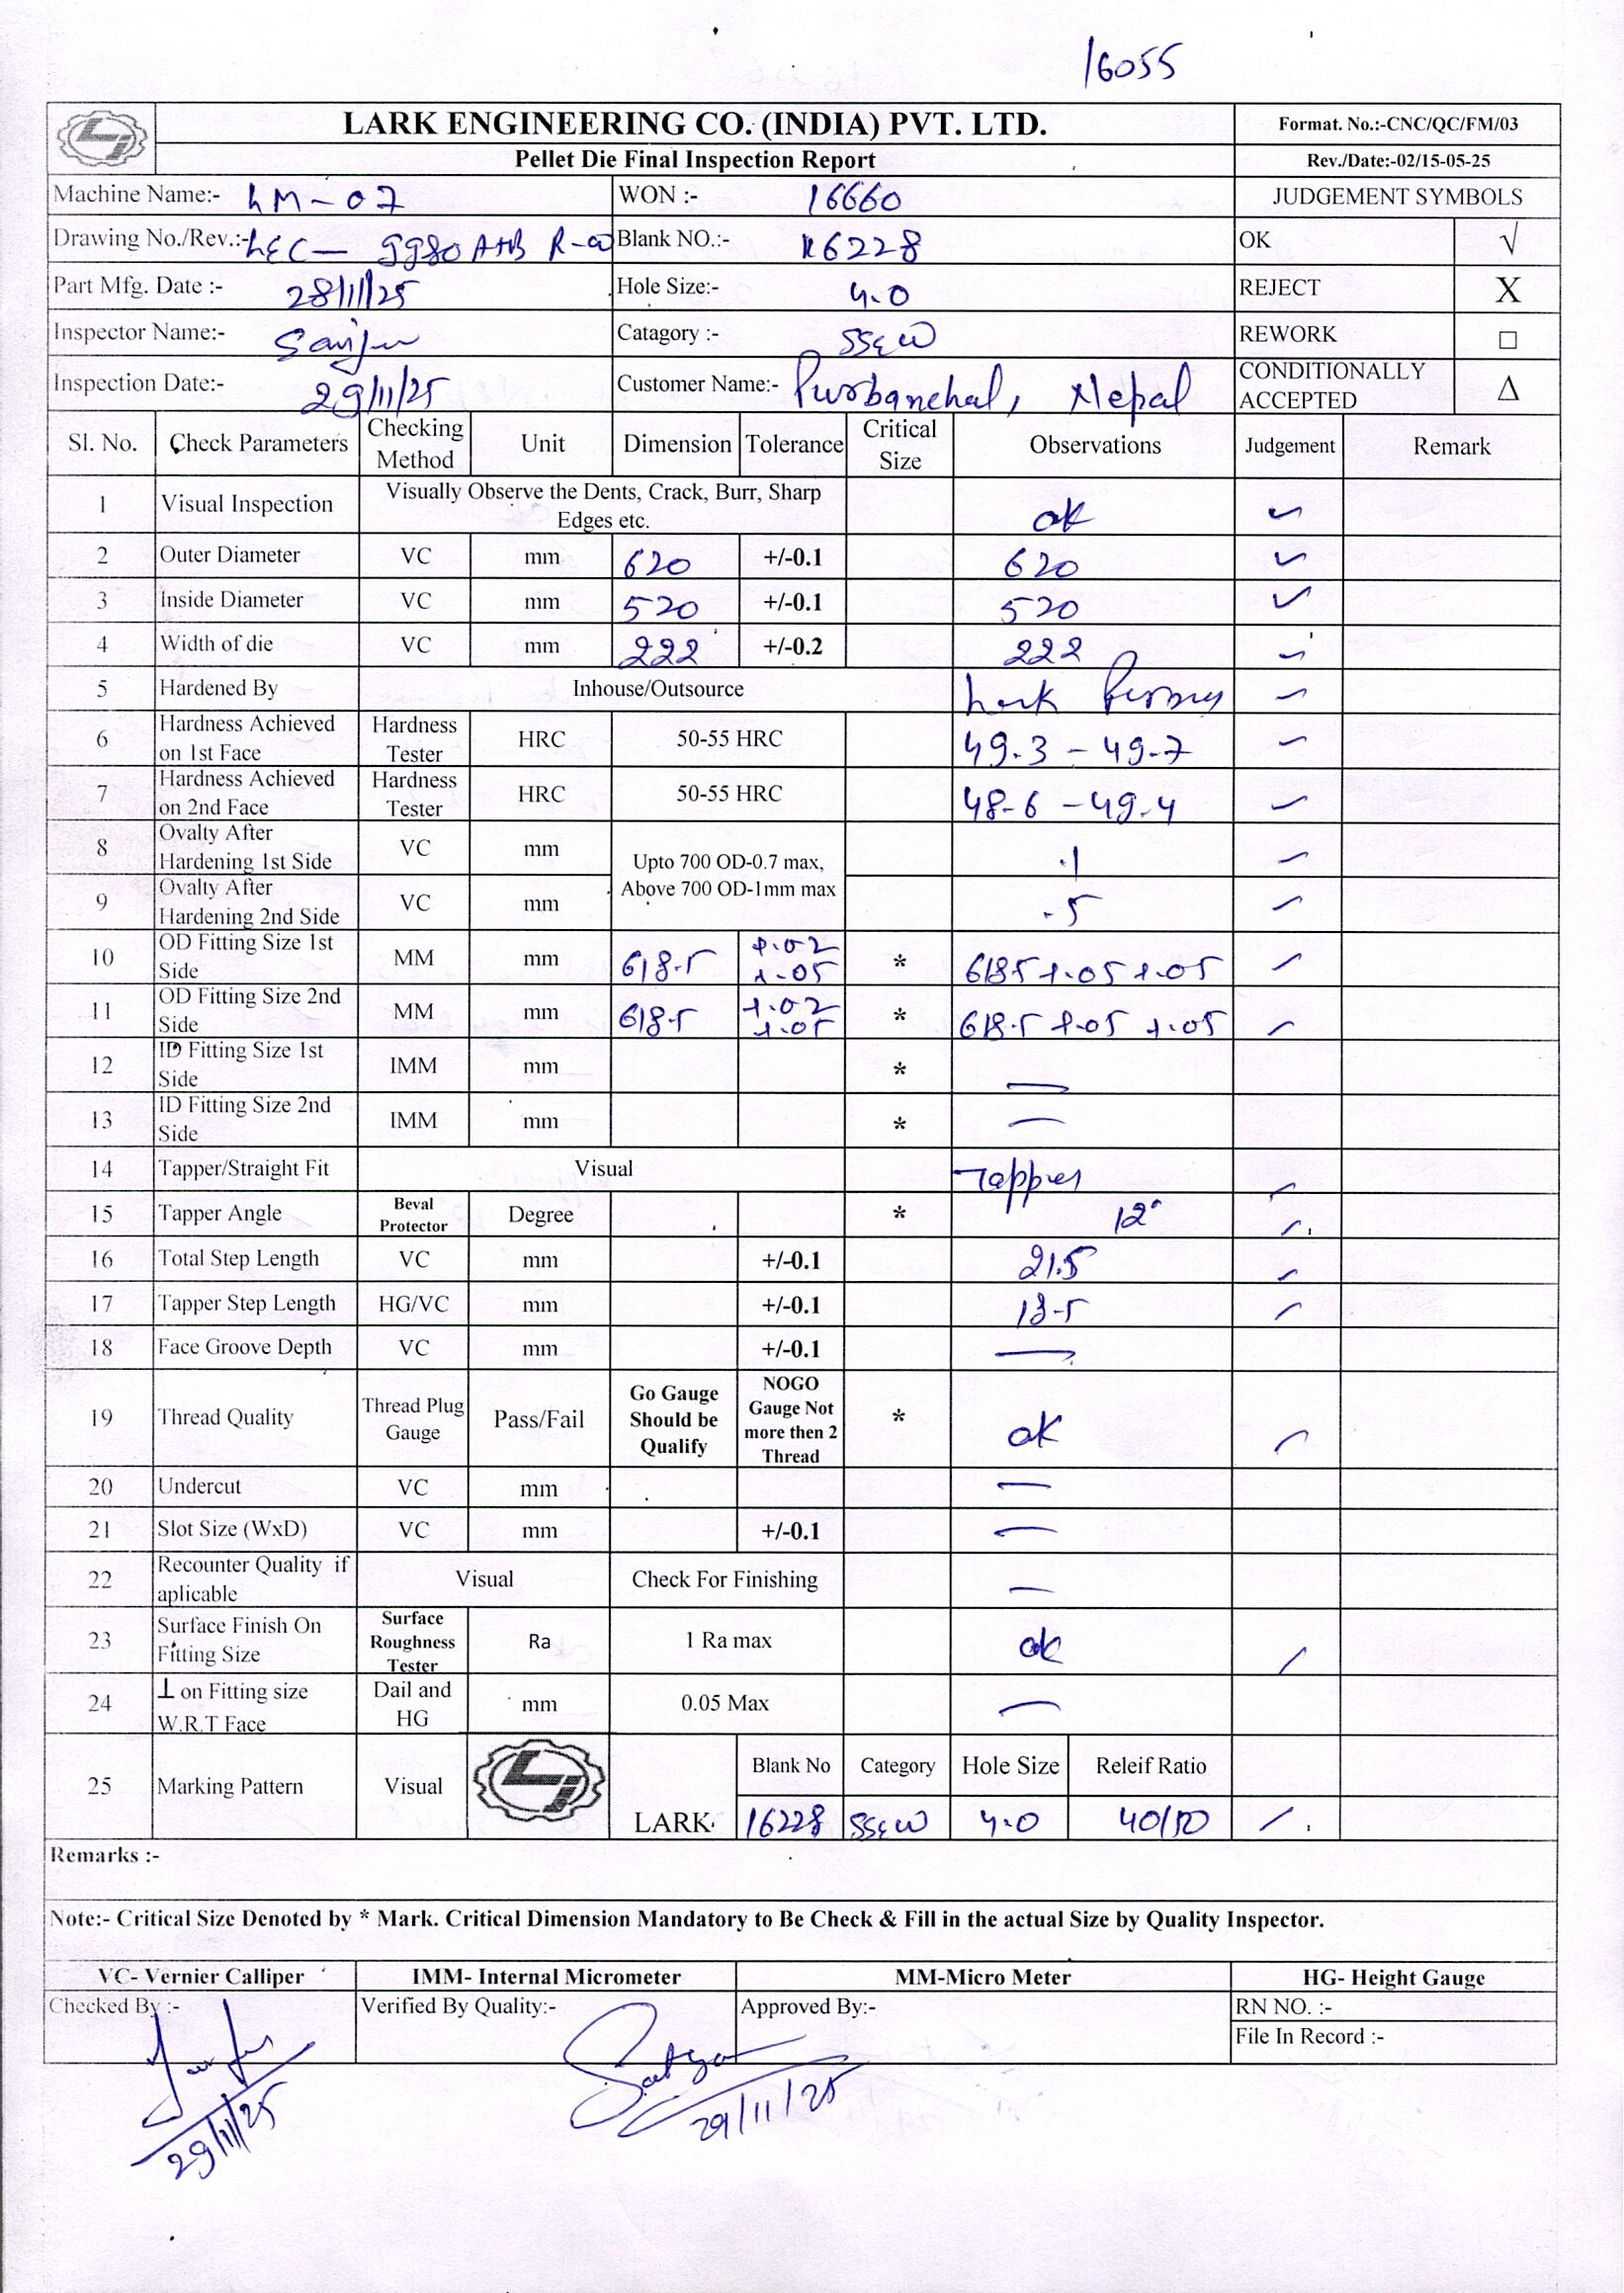 16055
LARK ENGINEERING CO. (INDIA) PVT. LTD.
Format. No.:-CNC/QC/FM/03
Pellet Die Final Inspection Report
Rev./Date:-02/15-05-25
Machine Name:- LM-07 WON :- 16660 JUDGEMENT SYMBOLS
Drawing No./Rev.:- LEC- 9980 A+B R-00 Blank NO.:- 16228 OK √
Part Mfg. Date :- 28/11/25 Hole Size:- 4.0 REJECT X
Inspector Name:- Sanju Catagory :- SS&W REWORK □
Inspection Date:- 29/11/25 Customer Name:- Purbanchal, Nepal CONDITIONALLY ACCEPTED Δ
Sl. No. Check Parameters Checking Method Unit Dimension Tolerance Critical Size Observations Judgement Remark
1 Visual Inspection Visually Observe the Dents, Crack, Burr, Sharp Edges etc. ok ✓
2 Outer Diameter VC mm 620 +/-0.1 620 ✓
3 Inside Diameter VC mm 520 +/-0.1 520 ✓
4 Width of die VC mm 222 +/-0.2 222 ✓
5 Hardened By Inhouse/Outsource Lark ✓
6 Hardness Achieved on 1st Face Hardness Tester HRC 50-55 HRC 49.3 - 49.7 ✓
7 Hardness Achieved on 2nd Face Hardness Tester HRC 50-55 HRC 48.6 - 49.4 ✓
8 Ovalty After Hardening 1st Side VC mm Upto 700 OD-0.7 max, Above 700 OD-1mm max .1 ✓
9 Ovalty After Hardening 2nd Side VC mm .5 ✓
10 OD Fitting Size 1st Side MM mm 618.5 +.02 +.05 * 618.5 +.05 +.05 ✓
11 OD Fitting Size 2nd Side MM mm 618.5 +.02 +.05 * 618.5 +.05 +.05 ✓
12 ID Fitting Size 1st Side IMM mm * —
13 ID Fitting Size 2nd Side IMM mm * —
14 Tapper/Straight Fit Visual Tapper ✓
15 Tapper Angle Beval Protector Degree * 12° ✓
16 Total Step Length VC mm +/-0.1 21.5 ✓
17 Tapper Step Length HG/VC mm +/-0.1 13.5 ✓
18 Face Groove Depth VC mm +/-0.1 —
19 Thread Quality Thread Plug Gauge Pass/Fail Go Gauge Should be Qualify NOGO Gauge Not more then 2 Thread * ok ✓
20 Undercut VC mm —
21 Slot Size (WxD) VC mm +/-0.1 —
22 Recounter Quality if aplicable Visual Check For Finishing —
23 Surface Finish On Fitting Size Surface Roughness Tester Ra 1 Ra max ok ✓
24 ⊥ on Fitting size W.R.T Face Dail and HG mm 0.05 Max —
25 Marking Pattern Visual LARK Blank No Category Hole Size Releif Ratio
16228 SS&W 4.0 40/50 ✓
Remarks :-
Note:- Critical Size Denoted by * Mark. Critical Dimension Mandatory to Be Check & Fill in the actual Size by Quality Inspector.
VC- Vernier Calliper IMM- Internal Micrometer MM-Micro Meter HG- Height Gauge
Checked By :- Verified By Quality:- Approved By:- RN NO. :-
File In Record :-
Sanju Satya
29/11/25 29/11/25